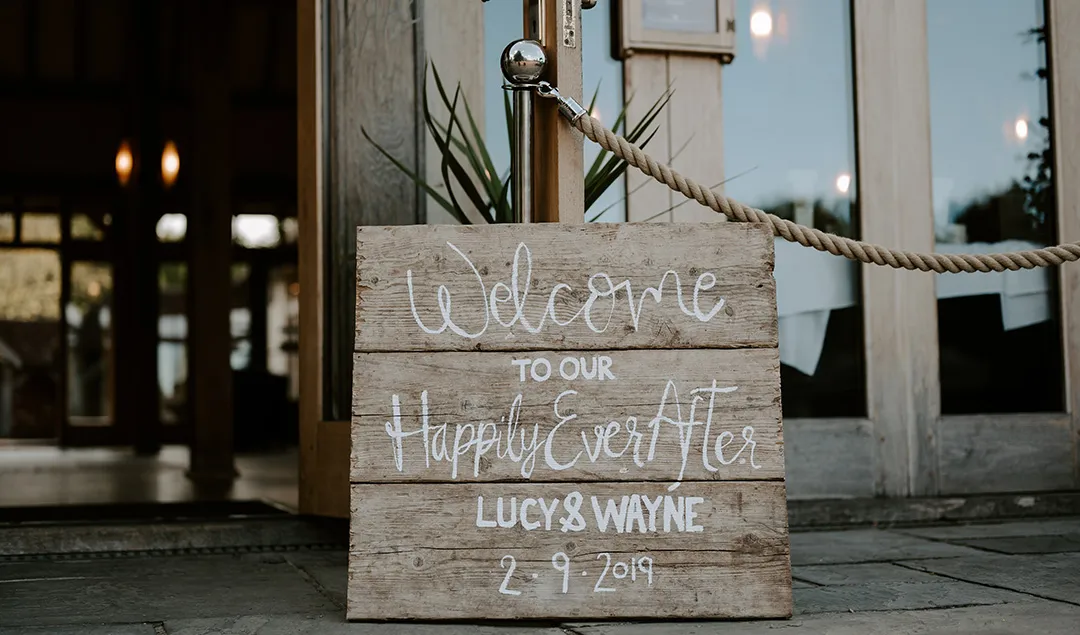 Welcome
TO OUR
Happily Ever After
LUCY & WAYNE
2.9.2019